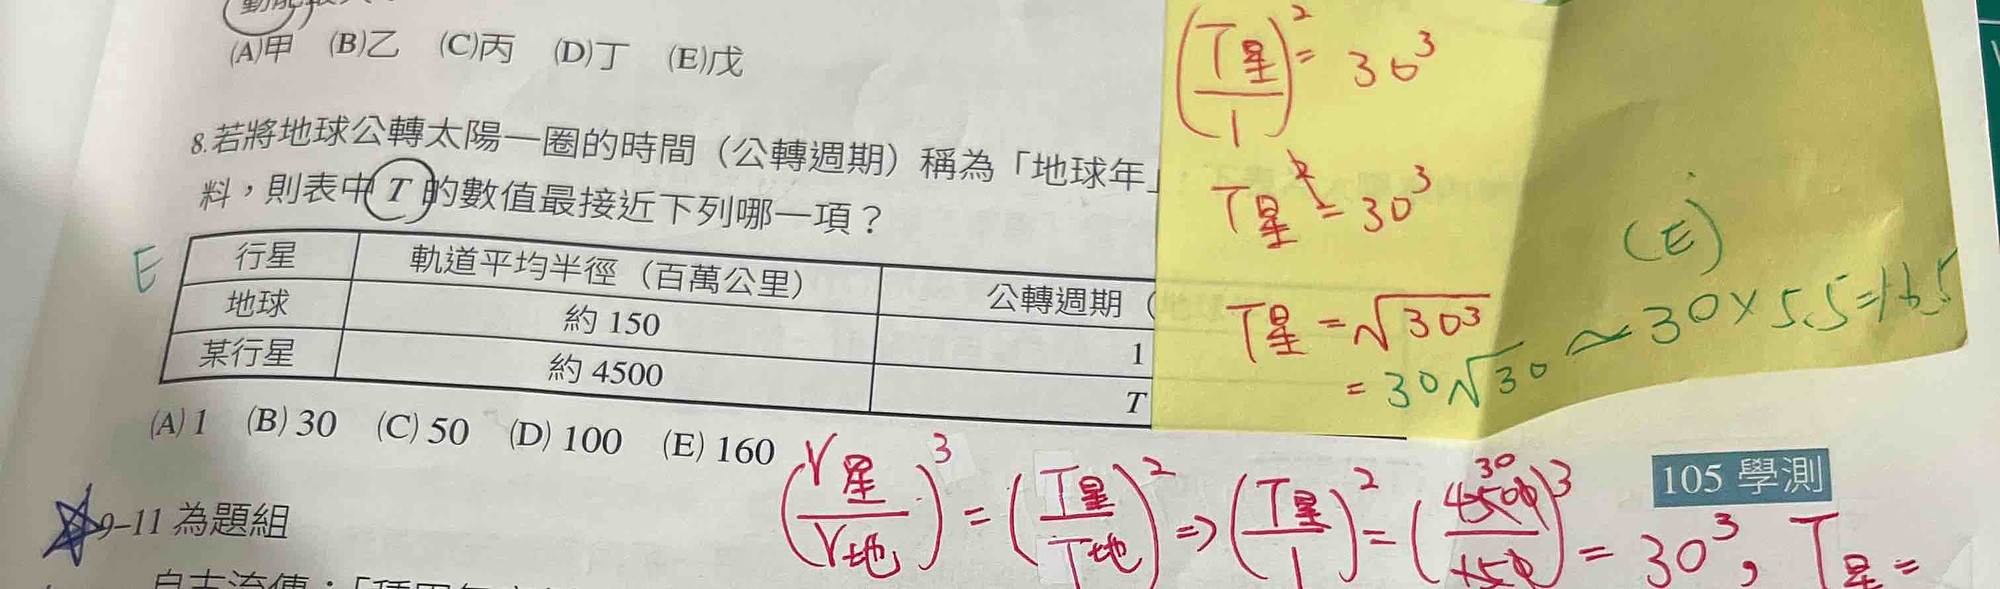 (A)甲 (B)乙 (C)丙 (D)丁 (E)戊
8.若將地球公轉太陽一圈的時間（公轉週期）稱為「地球年」
料，則表中 T 的數值最接近下列哪一項？
E
行星 軌道平均半徑（百萬公里） 公轉週期（
地球 約 150 1
某行星 約 4500 T
(A) 1 (B) 30 (C) 50 (D) 100 (E) 160
(T星/1)²=30³
T星²=30³
T星=√30³
=30√30≈30×5.5=165
(E)
(r星/r地)³=(T星/T地)²⇒(T星/1)²=(4500/150)³=30³，T星=
30
105 學測
9–11 為題組